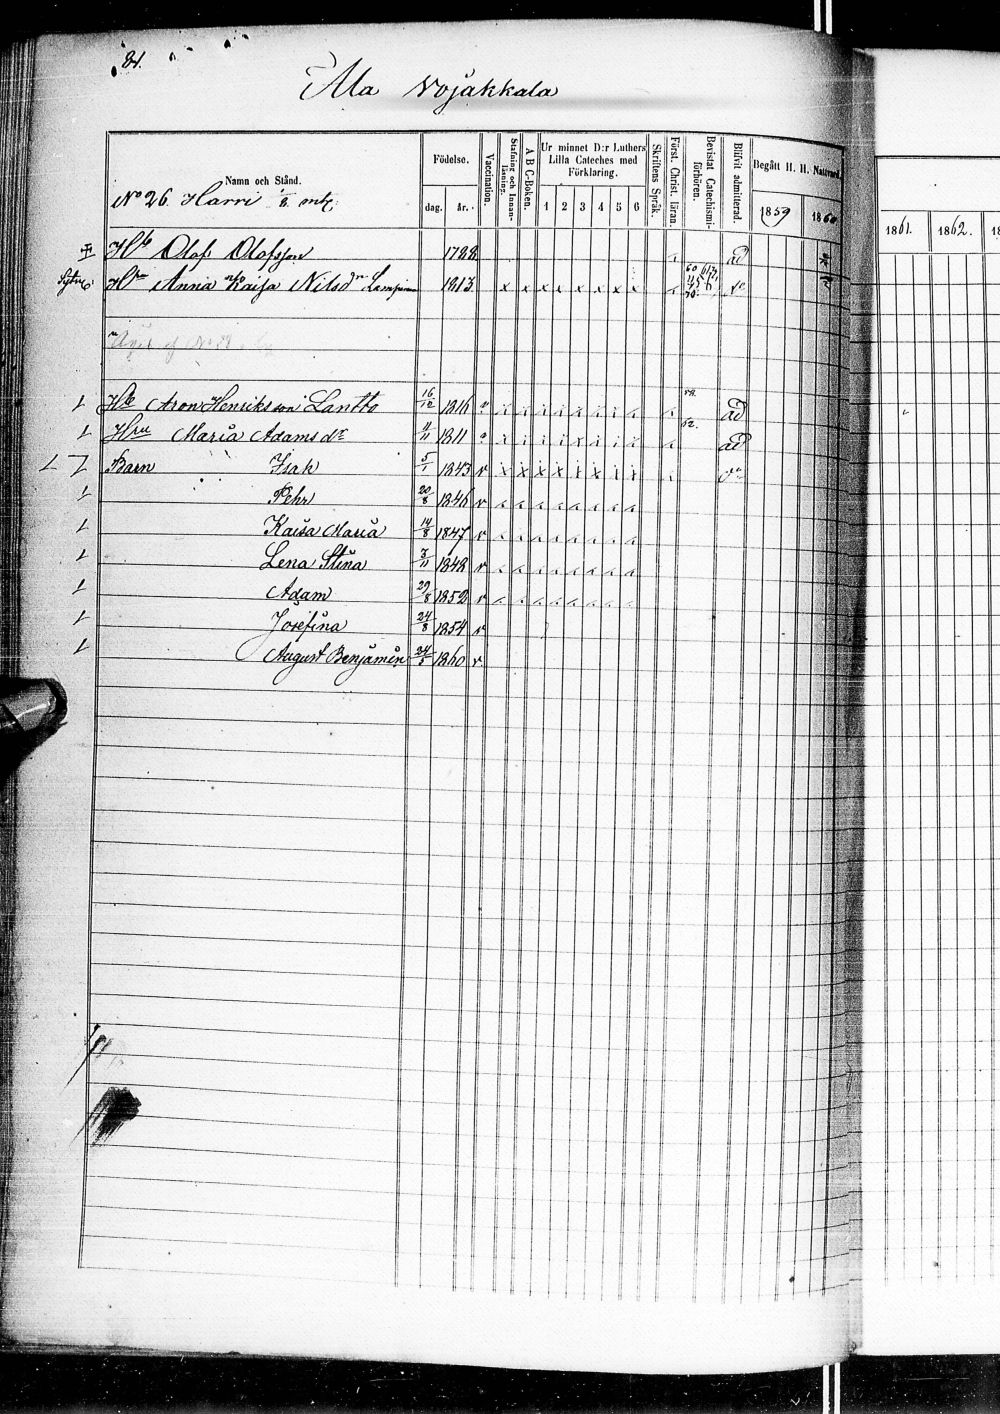 81.
Alla Vojakkala
Namn och Stånd.
Födelse.
dag. år.
Vaccination.
Stafning och Innanläsning.
A B C-Boken.
Ur minnet D:r Luthers Lilla Cateches med Förklaring.
1 2 3 4 5 6
Skriftens Språk.
Först. Christ. läran.
Bevistat Catechismiförhören.
Blifvit admitterad.
Begått H. H. Nattvard.
1859 1860 1861. 1862. 1
No 26 Harri 1/8 mtl:
Olof Olofsson 1788 ad
Anna Kaisa Nilsd:r 1813 x x x x x x x x
Aron Henriksson Lantto 16/12 1816 v 58. ad
Hru Maria Adamsdr 11/11 1811 62. ad
Barn Isak 5/1 1843 v
Pehr 20/8 1846 v
Kaisa Maria 14/8 1847 v
Lena Stina 3/11 1848 v
Adam 29/8 1852 v
Josefina 24/8 1854 v
August Benjamin 24/5 1860 v.